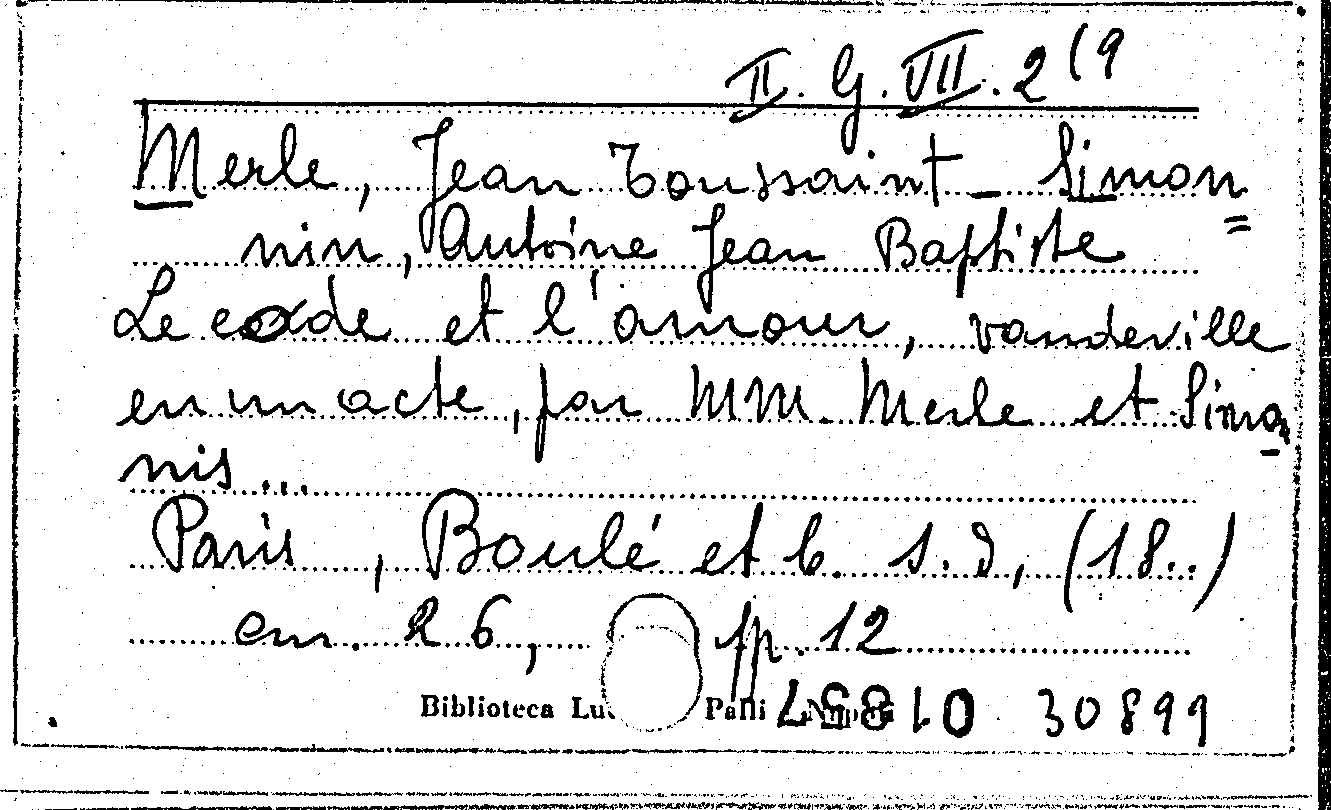 II. G. VII. 2 (9
Merle, Jean Toussaint - Simon=
nin, Antoine Jean Baptiste
Le code et l'amour, vaudeville
en un acte, par MM. Merle et Simo-
nis...
Paris, Boulé et C. s.d, (18..)
cm. 26, pp. 12
Biblioteca Lu Palli 30899